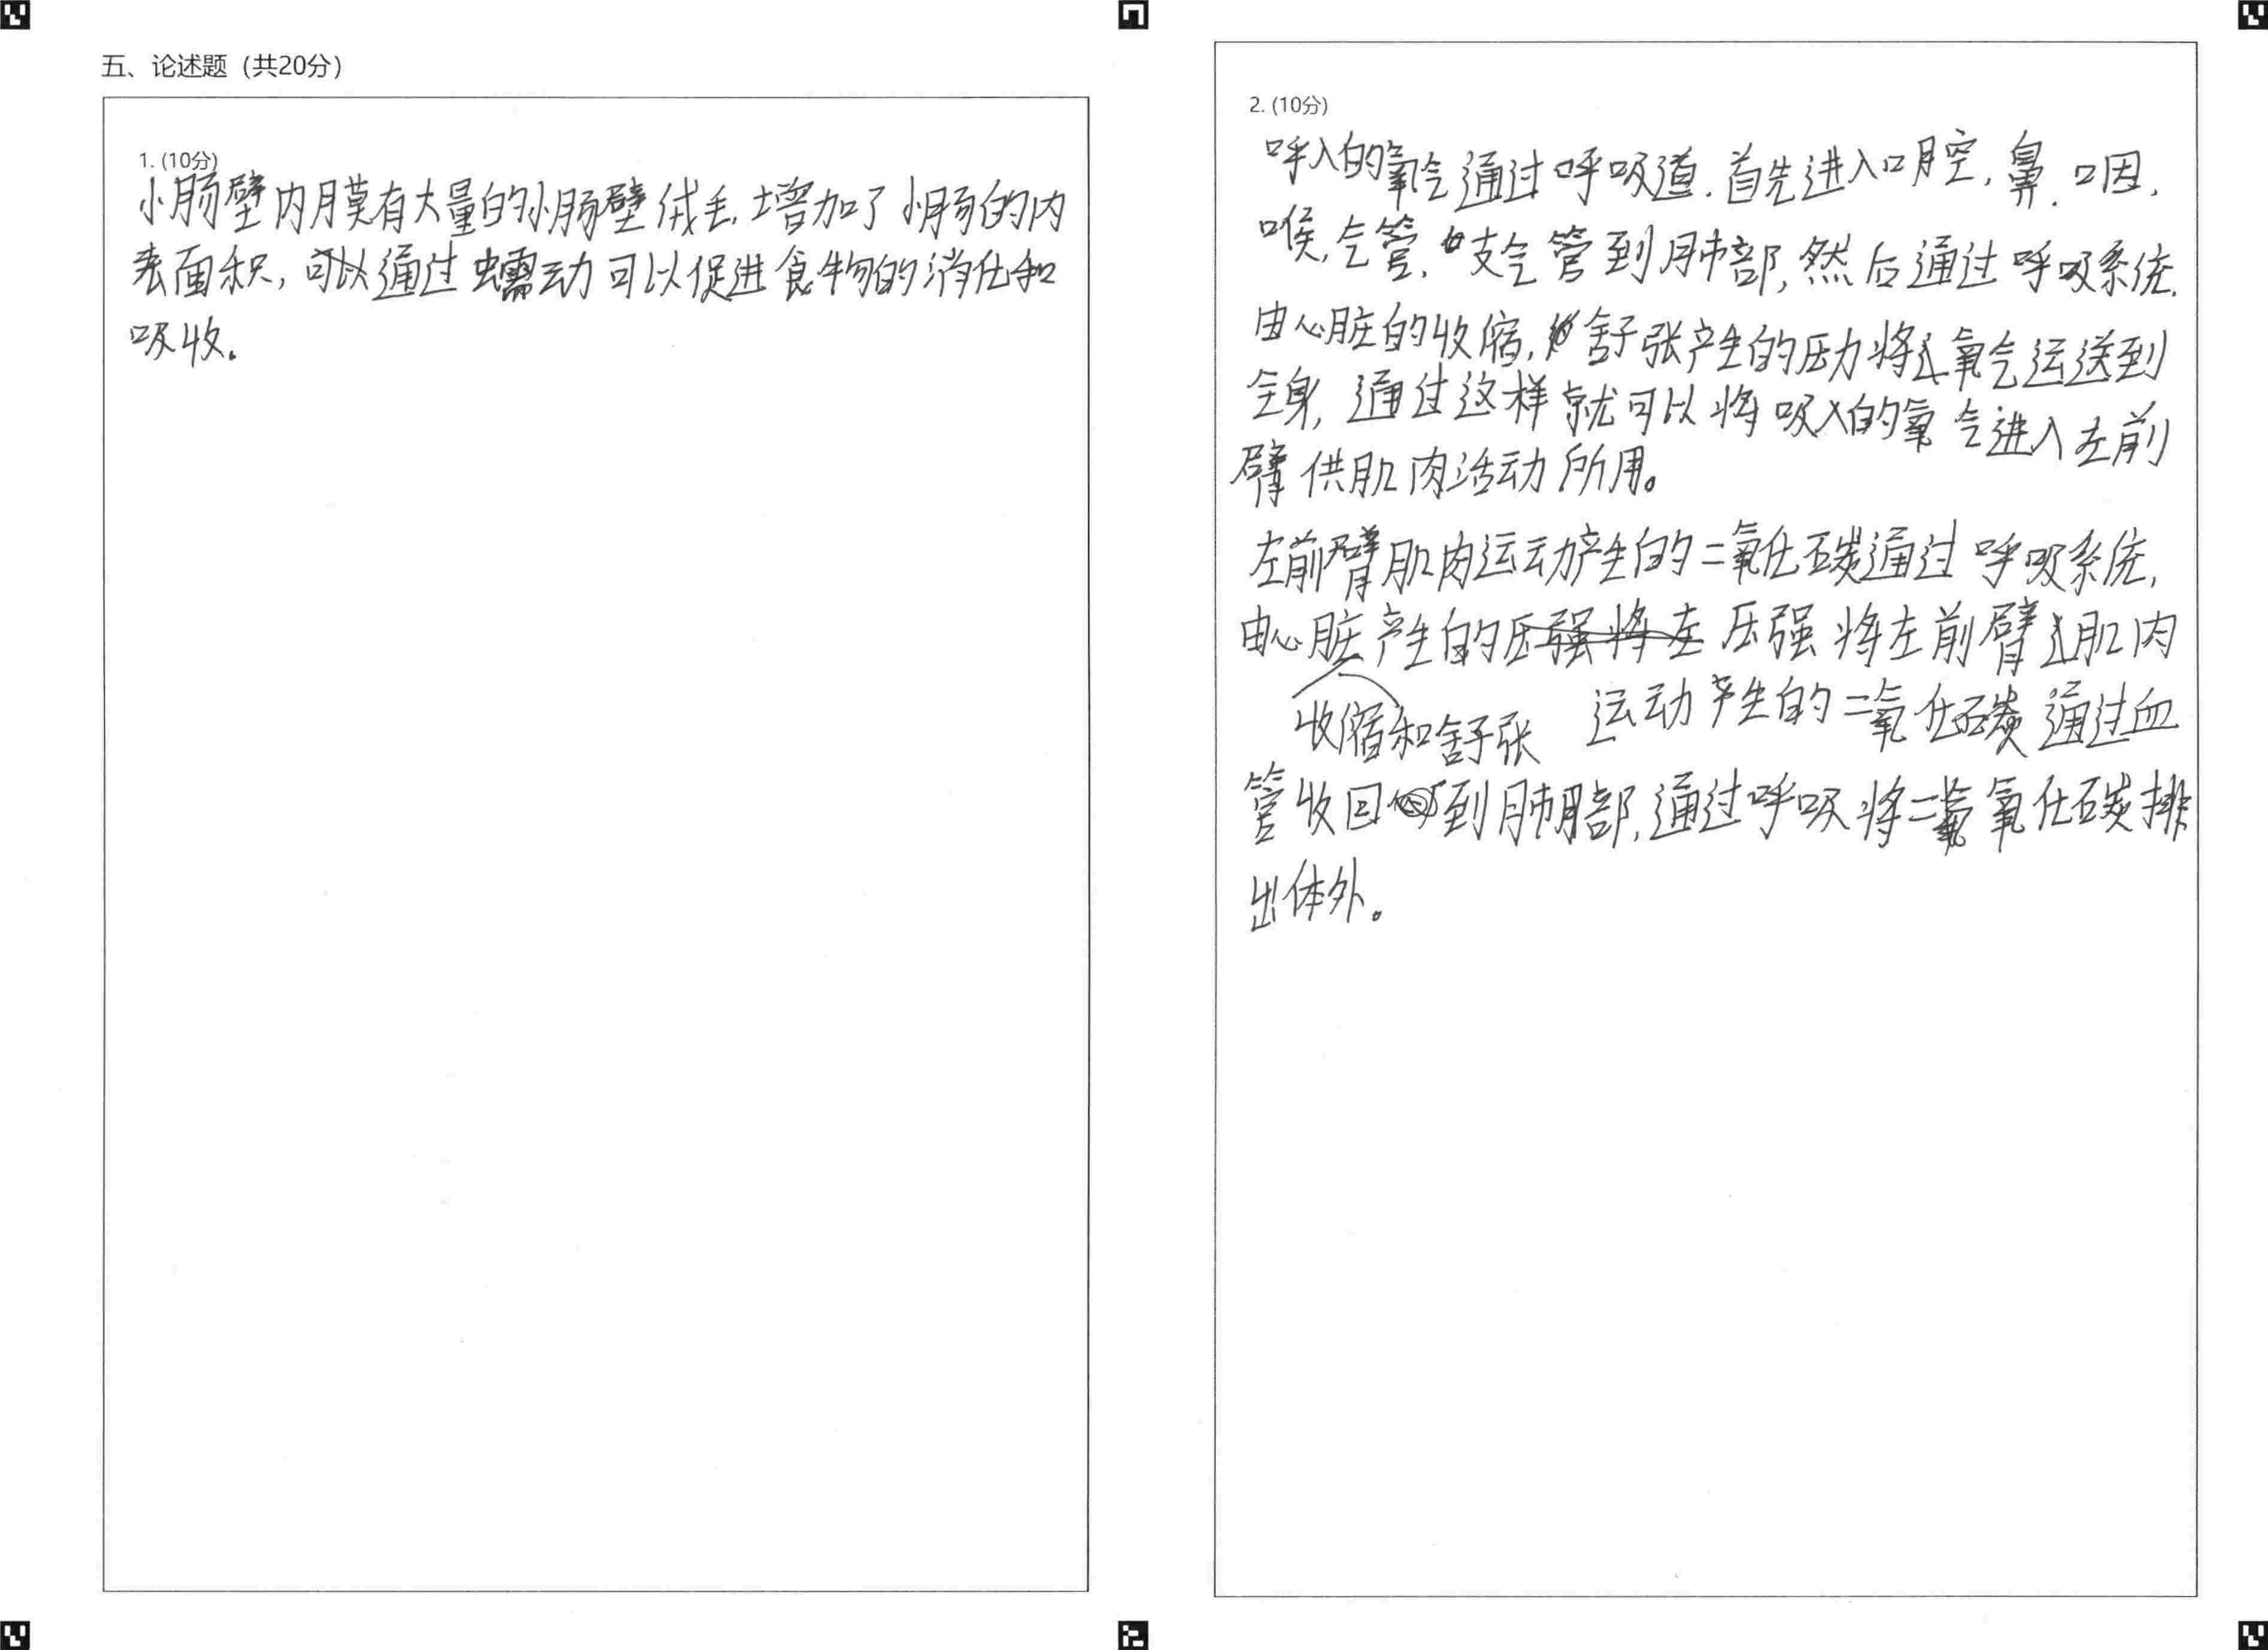 五、论述题（共20分）
1. (10分)
小肠壁内膜有大量的小肠壁绒毛,增加了小肠的内
表面积,可以通过蠕动可以促进食物的消化和
吸收。
2. (10分)
呼入的氧气通过呼吸道.首先进入口腔,鼻.咽,
喉,气管,支气管到肺部,然后通过呼吸系统.
由心脏的收缩,舒张产生的压力将氧气运送到
全身,通过这样就可以将吸入的氧气进入左前
臂供肌肉活动所用。
左前臂肌肉运动产生的二氧化碳通过呼吸系统,
由心脏产生的压强将左压强将左前臂肌肉
收缩和舒张 运动产生的二氧化碳通过血
管收回到肺部,通过呼吸将二氧化碳排
出体外。